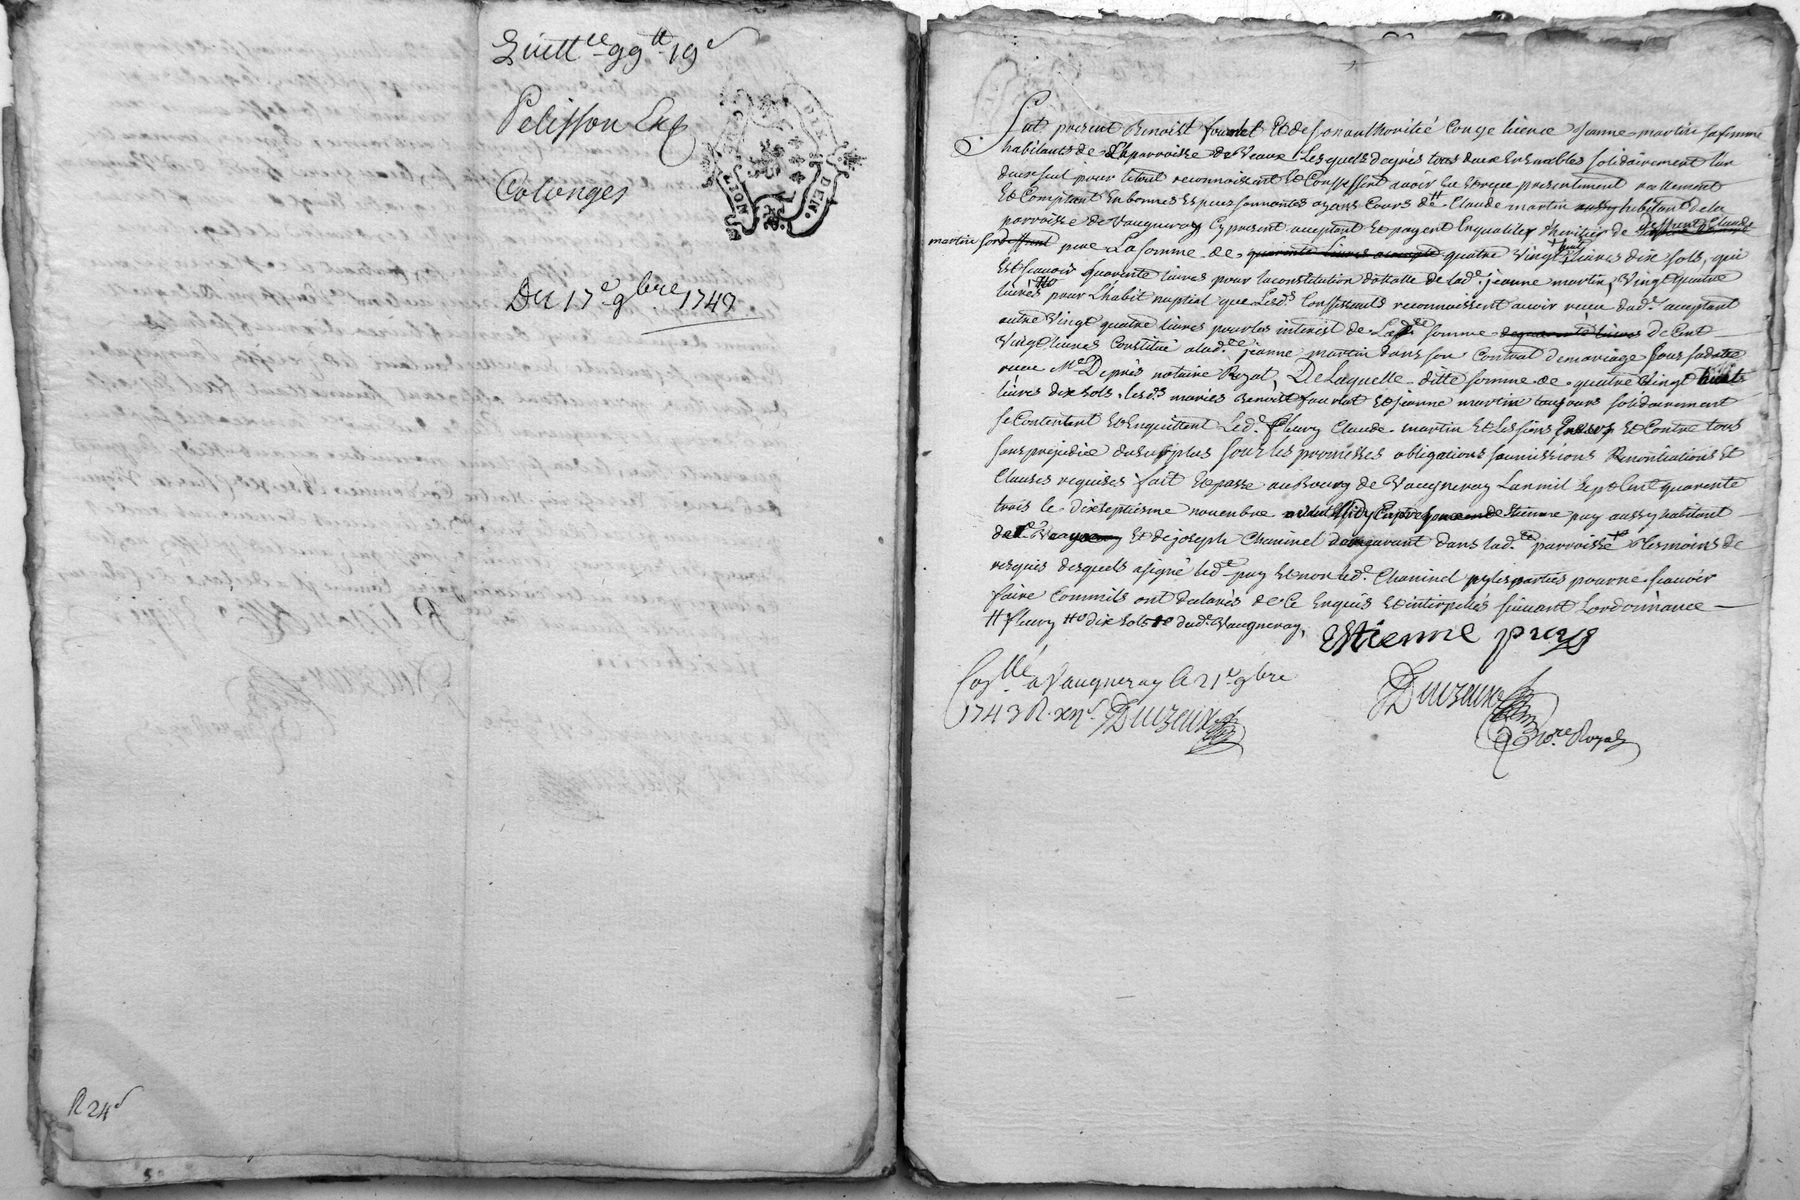 Quitt.ce 99tt 19s
Pelisson
Colonges
GENER DE LYON
Du 17e 9bre 1749
R 24s
Fut présent Benoist fourlat Et de son authorité Congé licence Jeanne martin sa femme
habitants de la parroisse de Veaux Lesquels degrés tous deux Ensembles solidairement l'un
deux seul pour letout reconnoissent Et Confessent avoir Eu Et reçue présentement reellement
Et Comptant En bonnes Espèces sonnantes ayans Cours de tt Claude martin aussy habitant de la
parroisse de Vaugneray Cy present acceptant Et payent En qualité d'héritier de deffunct Claude
martin son pere La somme de quarente livres acompte quatre Vingt huit livres dix sols, qui
Est scavoir quarente livres pour la constitution dottalle de lad.e jeanne martin, Vingt quatre
livres tto pour L'habit nuptial que Lesd.s Confessants reconnoissent avoir reçu dud.t acceptant
autre Vingt quatre livres pour les interist de Lad.e somme de quarente livres de Cent
Vingt livres Constitué a lad.e jeanne martin dans son Contrat de mariage sous sa datte
reçue Me Deprés notaire Royal, De Laquelle ditte somme de quatre Vingt huit
livres dix sols, lesd.s mariés Benoist fourlat Et jeanne martin toujours solidairement
se Contentent Et Enquittent Led.t fleury Claude martin Et Les siens Envers Et Contre tous
sans prejudice du surplus sous les promesses obligations soumissions Renontiations Et
Clauses requises fait Et passé au Bourg de Vaugneray Lan mil sept Cent quarente
trois le dixseptieme novembre Etienne puy aussy habitant
Et de joseph Chaminel demeurant dans lad.te parroisse temoins de
requis desquels a signé led.t puy Et non led.t Chaminel ny les parties pour ne scavoir
faire Comme ils ont declarés de Ce Enquis Et interpellés suivant Lordonnance
tt fleury tto dix sols dud.t Vaugneray,
Estienne puy
Con.llé a Vaugneray le 21e 9bre
1743 R. Duizeux
Duizeux
no.re Royal